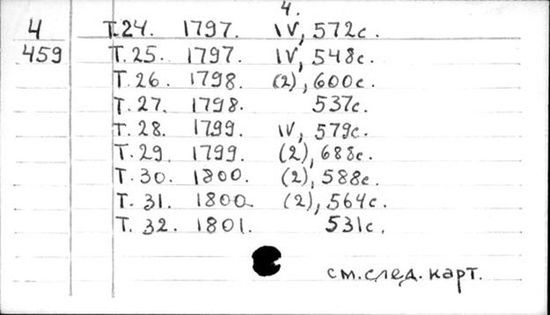 4.
4 Т.24. 1797. IV, 572с.
459 Т.25. 1797. IV, 548с.
Т.26. 1798. (2), 600с.
Т.27. 1798. 537с.
Т.28. 1799. IV, 579с.
Т.29. 1799. (2), 688с.
Т.30. 1800. (2), 588с.
Т.31. 1800. (2), 564с.
Т.32. 1801. 531с.
см.след.карт.